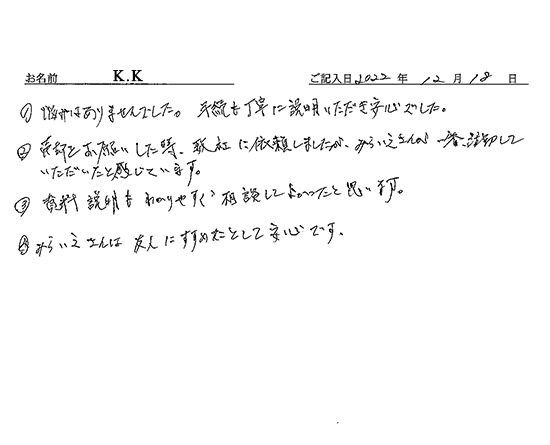 お名前 K.K ご記入日 2022 年 12 月 18 日
① 悩みはありませんでした。 手続も丁寧に説明いただき安心でした。
② 売却をお願いした時、数社に依頼しましたが、みらいえさんが一番親切して
いただいたと感じています。
③ 資料 説明も わかりやすく 相談してよかったと思います。
④ みらいえさんは 友人にすすめたとして安心です。